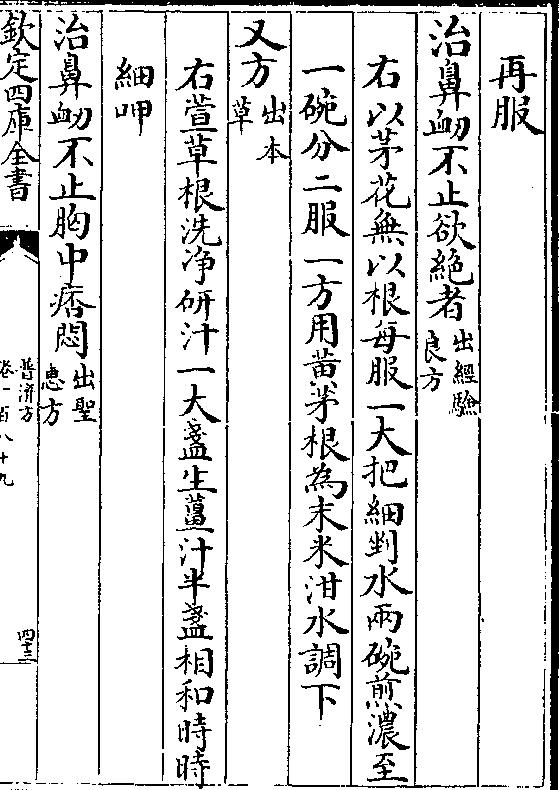 再服
治鼻衂不止欲絶者出經驗良方
右以茅花無以根每服一大把細剉水兩碗煎濃至
一碗分二服一方用黄茅根為末米泔水調下
又方出本草
右萱草根洗净研汁一大盞生薑汁半盞相和時時
細呷
治鼻衂不止胸中痞悶出聖惠方
欽定四庫全書
普濟方
卷一百八十九
四十三